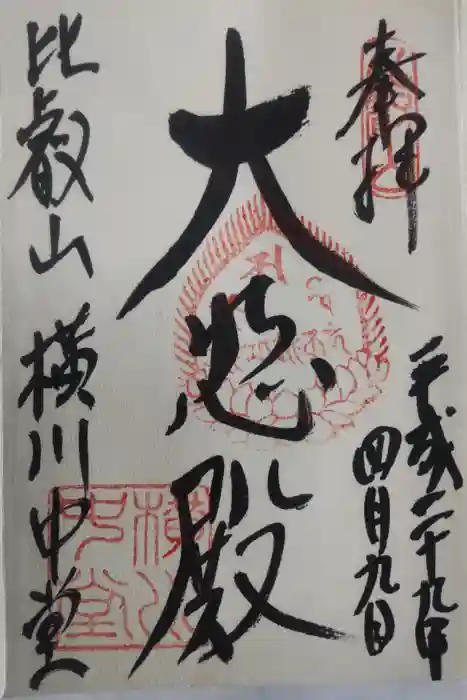 奉拝
平成二十九年
四月九日
大悲殿
比叡山 横川中堂